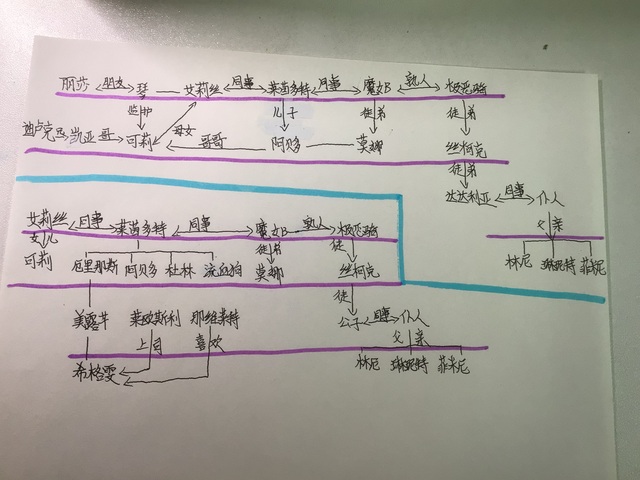 丽莎 朋友 琴 艾莉丝 同事 莱茵多特 同事 魔女B 熟人 极恶骑
监护 儿子 徒弟 徒弟
迪卢克 凯亚 哥 可莉 母女 哥哥 阿贝多 莫娜 丝柯克
徒弟
达达利亚 同事 仆人
父亲
林尼 琳妮特 菲米尼
艾莉丝 同事 莱茵多特 同事 魔女B 熟人 极恶骑
女儿 徒弟 徒
可莉 厄里那斯 阿贝多 杜林 流血狗 莫娜 丝柯克
徒
美露莘 莱欧斯利 那维莱特 公子 同事 仆人
上司 喜欢 父亲
希格雯 林尼 琳妮特 菲米尼